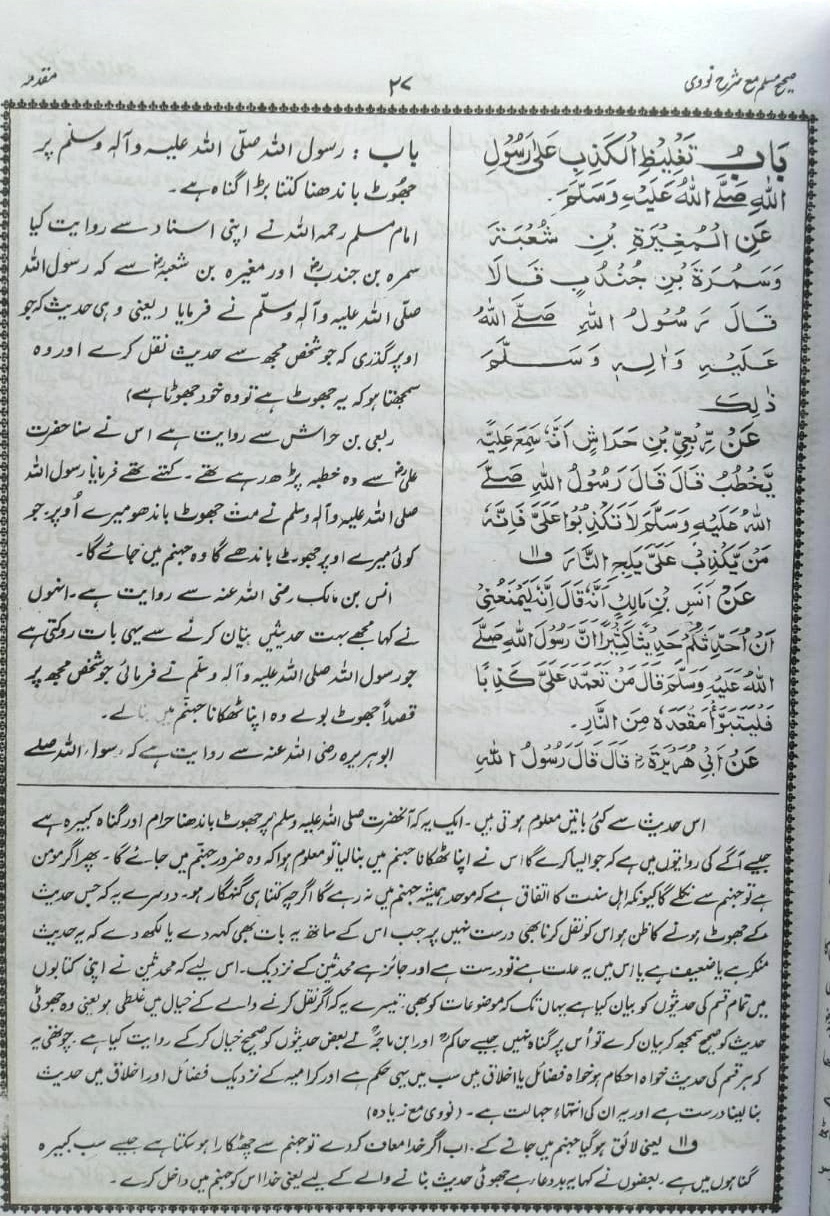 صحیح مسلم مع شرح نووی
۲۷
مقدمہ
بَابُ تَغْلِیْظِ الْکَذِبِ عَلٰی رَسُوْلِ
اللّٰہِ صَلَّے اللّٰہُ عَلَیْہِ وَسَلَّمَ۔
عَنِ الْمُغِیْرَۃِ بْنِ شُعْبَۃَ
وَسَمُرَۃَ بْنِ جُنْدُبٍ قَالَا
قَالَ رَسُوْلُ اللّٰہِ صَلَّے اللّٰہُ
عَلَیْہِ وَاٰلِہٖ وَسَلَّمَ
ذٰلِکَ
عَنْ رِّبْعِیِّ بْنِ حِدَاشٍ اَنَّہٗ سَمِعَ عَلِیًّا
یَّخْطُبُ قَالَ قَالَ رَسُوْلُ اللّٰہِ صَلَّے
اللّٰہُ عَلَیْہِ وَسَلَّمَ لَا تَکْذِبُوْا عَلَیَّ فَاِنَّہٗ
مَنْ یَّکْذِبْ عَلَیَّ یَلِجِ النَّارَ ف۱۱
عَنْ اَنَسِ بْنِ مَالِکٍ اَنَّہٗ قَالَ اِنَّہٗ لَیَمْنَعُنِیْ
اَنْ اُحَدِّثَکُمْ حَدِیْثًا کَثِیْرًا اَنَّ رَسُوْلَ اللّٰہِ صَلَّے
اللّٰہُ عَلَیْہِ وَسَلَّمَ قَالَ مَنْ تَعَمَّدَ عَلَیَّ کَذِبًا
فَلْیَتَبَوَّأْ مَقْعَدَہٗ مِنَ النَّارِ۔
عَنْ اَبِیْ ھُرَیْرَۃَ رض قَالَ قَالَ رَسُوْلُ اللّٰہِ
باب : رسول اللہ صلّی اللہ علیہ وآلہٖ وسلم پر
جھوٹ باندھنا کتنا بڑا گناہ ہے۔
امام مسلم رحمہ اللہ نے اپنی اسناد سے روایت کیا
سمرہ بن جندبؓ اور مغیرہ بن شعبہؓ سے کہ رسول اللہ
صلّی اللہ علیہ وآلہٖ وسلّم نے فرمایا (یعنی وہی حدیث کہ جو
اوپر گذری کہ جو شخص مجھ سے حدیث نقل کرے اور وہ
سمجھتا ہو کہ یہ جھوٹ ہے تو وہ خود جھوٹا ہے)
ربعی بن حراش سے روایت ہے اس نے سنا حضرت
علیؓ سے وہ خطبہ پڑھ رہے تھے۔ کہتے تھے فرمایا رسول اللہ
صلی اللہ علیہ وآلہٖ وسلم نے مت جھوٹ باندھو میرے اُوپر، جو
کوئی میرے اوپر جھوٹ باندھے گا وہ جہنم میں جائے گا۔
انس بن مالک رضی اللہ عنہ سے روایت ہے۔ انہوں
نے کہا مجھے بہت حدیثیں بیان کرنے سے یہی بات روکتی ہے
جو رسول اللہ صلی اللہ علیہ وآلہٖ وسلّم نے فرمائی جو شخص مجھ پر
قصداً جھوٹ بولے وہ اپنا ٹھکانا جہنّم میں بنا لے۔
ابوہریرہ رضی اللہ عنہ سے روایت ہے کہ رسول اللہ صلے
اس حدیث سے کئی باتیں معلوم ہوتی ہیں۔ ایک یہ کہ آنحضرت صلی اللہ علیہ وسلم پر جھوٹ باندھنا حرام اور گناہ کبیرہ ہے
جیسے آگے کی روایتوں میں ہے کہ جو ایسا کرے گا اس نے اپنا ٹھکانا جہنم میں بنا لیا تو معلوم ہوا کہ وہ ضرور جہنم میں جائے گا۔ پھر اگر مومن
ہے تو جہنم سے نکلے گا کیونکہ اہل سنت کا اتفاق ہے کہ موحد ہمیشہ جہنم میں نہ رہے گا اگرچہ کتنا ہی گنہگار ہو۔ دوسرے یہ کہ جس حدیث
کے جھوٹ ہونے کا ظن ہو اس کو نقل کرنا بھی درست نہیں پر جب اس کے ساتھ یہ بات بھی کہہ دے یا لکھ دے کہ یہ حدیث
منکر ہے یا ضعیف ہے یا اس میں یہ علت ہے تو درست ہے اور جائز ہے محدثین کے نزدیک۔ اس لیے کہ محدثین نے اپنی کتابوں
میں تمام قسم کی حدیثوں کو بیان کیا ہے یہاں تک کہ موضوعات کو بھی۔ تیسرے یہ کہ اگر نقل کرنے والے کے خیال میں غلطی ہو یعنی وہ جھوٹی
حدیث کو صحیح سمجھ کر بیان کرے تو اُس پر گناہ نہیں جیسے حاکمؒ اور ابن ماجہؒ نے بعض حدیثوں کو صحیح خیال کرکے روایت کیا ہے۔ چوتھی یہ
کہ ہر قسم کی حدیث خواہ احکام ہو خواہ فضائل یا اخلاق میں سب میں یہی حکم ہے اور کرامیہ کے نزدیک فضائل اور اخلاق میں حدیث
بنا لینا درست ہے اور یہ ان کی انتہاء جہالت ہے۔ (نووی مع زیادہ)
ف۱۱ یعنی لائق ہوگیا جہنم میں جانے کے۔ اب اگر خدا معاف کردے تو جہنم سے چھٹکارا ہوسکتا ہے جیسے سب کبیرہ
گناہوں میں ہے۔ بعضوں نے کہا یہ بددعاء ہے جھوٹی حدیث بنانے والے کے لیے یعنی خدا اس کو جہنم میں داخل کرے۔